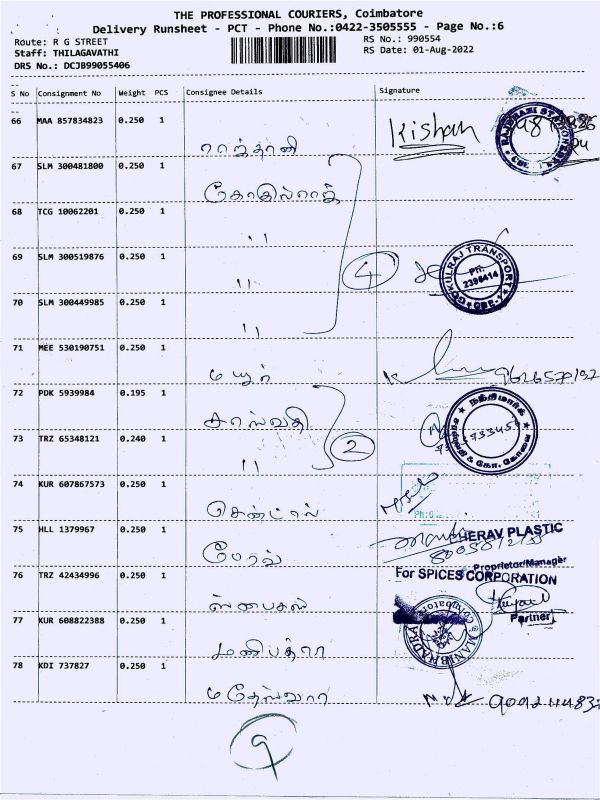 THE PROFESSIONAL COURIERS, Coimbatore
Delivery Runsheet - PCT - Phone No.:0422-3505555 - Page No.:6
Route: R G STREET
RS No.: 990554
Staff: THILAGAVATHI
RS Date: 01-Aug-2022
DRS No.: DCJB99055406
S No Consignment No Weight PCS Consignee Details Signature
66 MAA 857834823 0.250 1
Kishan
ராஜ்தானி
67 SLM 300481800 0.250 1
கோகில்ராஜ்
68 TCG 10062201 0.250 1
"
69 SLM 300519876 0.250 1
4
GOKULRAJ TRANSPORT
PH: 2396414
CBE-1
"
70 SLM 300449985 0.250 1
"
71 MEE 530190751 0.250 1
மயூர்
72 PDK 5939984 0.195 1
சரஸ்வதி
73 TRZ 65348121 0.240 1
2
"
74 KUR 607867573 0.250 1
சென்ட்ரல்
75 HLL 1379967 0.250 1
THERAV PLASTIC
Proprietor/Manager
76 TRZ 42434996 0.250 1
For SPICES CORPORATION
Partner
77 KUR 608822388 0.250 1
MANIBHADRA
Coimbatore
மணிபத்ரா
78 KDI 737827 0.250 1
மகேஸ்வரா
9